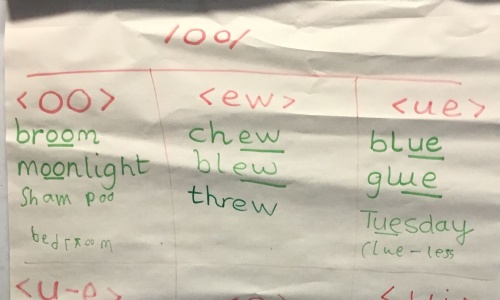 /oo/
<oo>
broom
moonlight
Sham poo
bedroom
<ew>
chew
blew
threw
<ue>
blue
glue
Tuesday
Clue-less
<u-e>